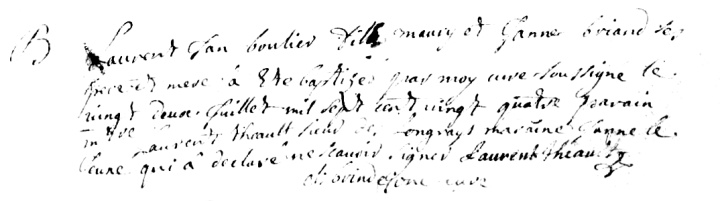 B Laurent Jan boulier fils maury et Janne briand ses
pere et mere a Ete baptizé par moy curé soussigné le
vingt deux Juillet mil sept cent vingt quatre parain
Laurent theault sieur des longrays maraine Janne le
Jeune qui a declaré ne scavoir signer Laurent theault